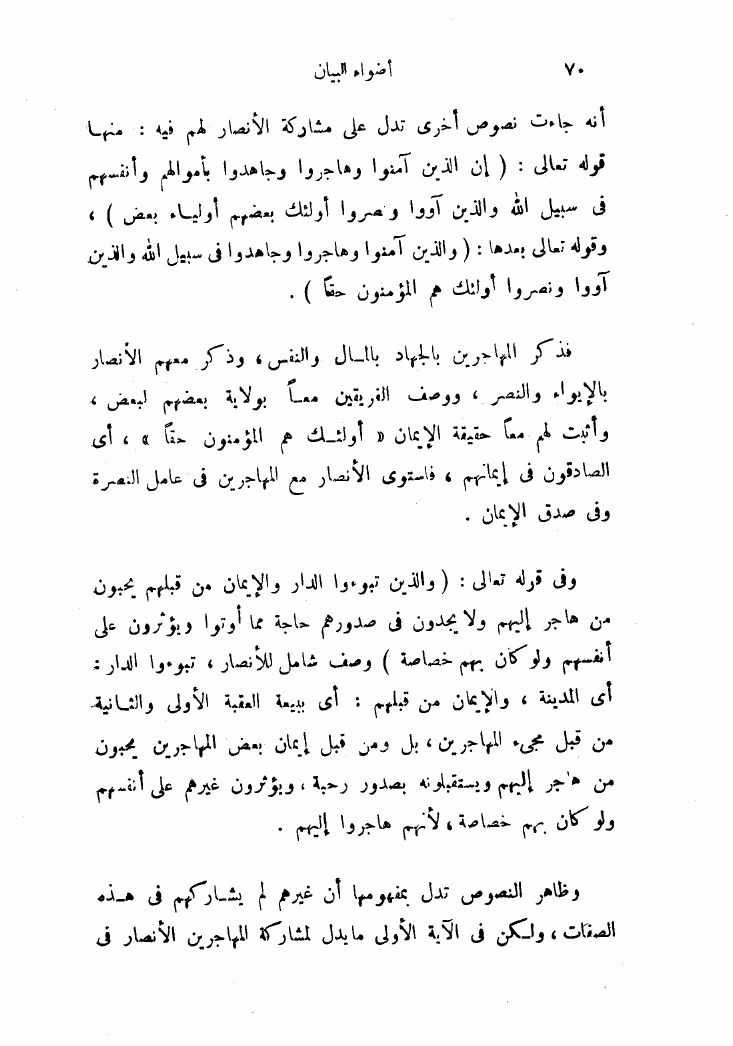 ٧٠ أضواء البيان
أنه جاءت نصوص أخرى تدل على مشاركة الأنصار لهم فيه : منها
قوله تعالى : ( إن الذين آمنوا وهاجروا وجاهدوا بأموالهم وأنفسهم
فى سبيل الله والذين آووا ونصروا أولئك بعضهم أولياء بعض ) ،
وقوله تعالى بعدها : ( والذين آمنوا وهاجروا وجاهدوا فى سبيل الله والذين
آووا ونصروا أولئك هم المؤمنون حقاً ) .
فذكر المهاجرين بالجهاد بالمال والنفس ، وذكر معهم الأنصار
بالإيواء والنصر ، ووصف الفريقين معاً بولاية بعضهم لبعض ،
وأثبت لهم معاً حقيقة الإيمان « أولئك هم المؤمنون حقاً » ، أى
الصادقون فى إيمانهم ، فاستوى الأنصار مع المهاجرين فى عامل النصرة
وفى صدق الإيمان .
وفى قوله تعالى : ( والذين تبوءوا الدار والإيمان من قبلهم يحبون
من هاجر إليهم ولا يجدون فى صدورهم حاجة مما أوتوا ويؤثرون على
أنفسهم ولو كان بهم خصاصة ) وصف شامل للأنصار ، تبوءوا الدار :
أى المدينة ، والإيمان من قبلهم : أى ببيعة العقبة الأولى والثانية
من قبل مجىء المهاجرين ، بل ومن قبل إيمان بعض المهاجرين يحبون
من هاجر إليهم ويستقبلونه بصدور رحبة ، ويؤثرون غيرهم على أنفسهم
ولو كان بهم خصاصة ، لأنهم هاجروا إليهم .
وظاهر النصوص تدل بمفهومها أن غيرهم لم يشاركهم فى هذه
الصفات ، ولكن فى الآية الأولى ما يدل لمشاركة المهاجرين الأنصار فى